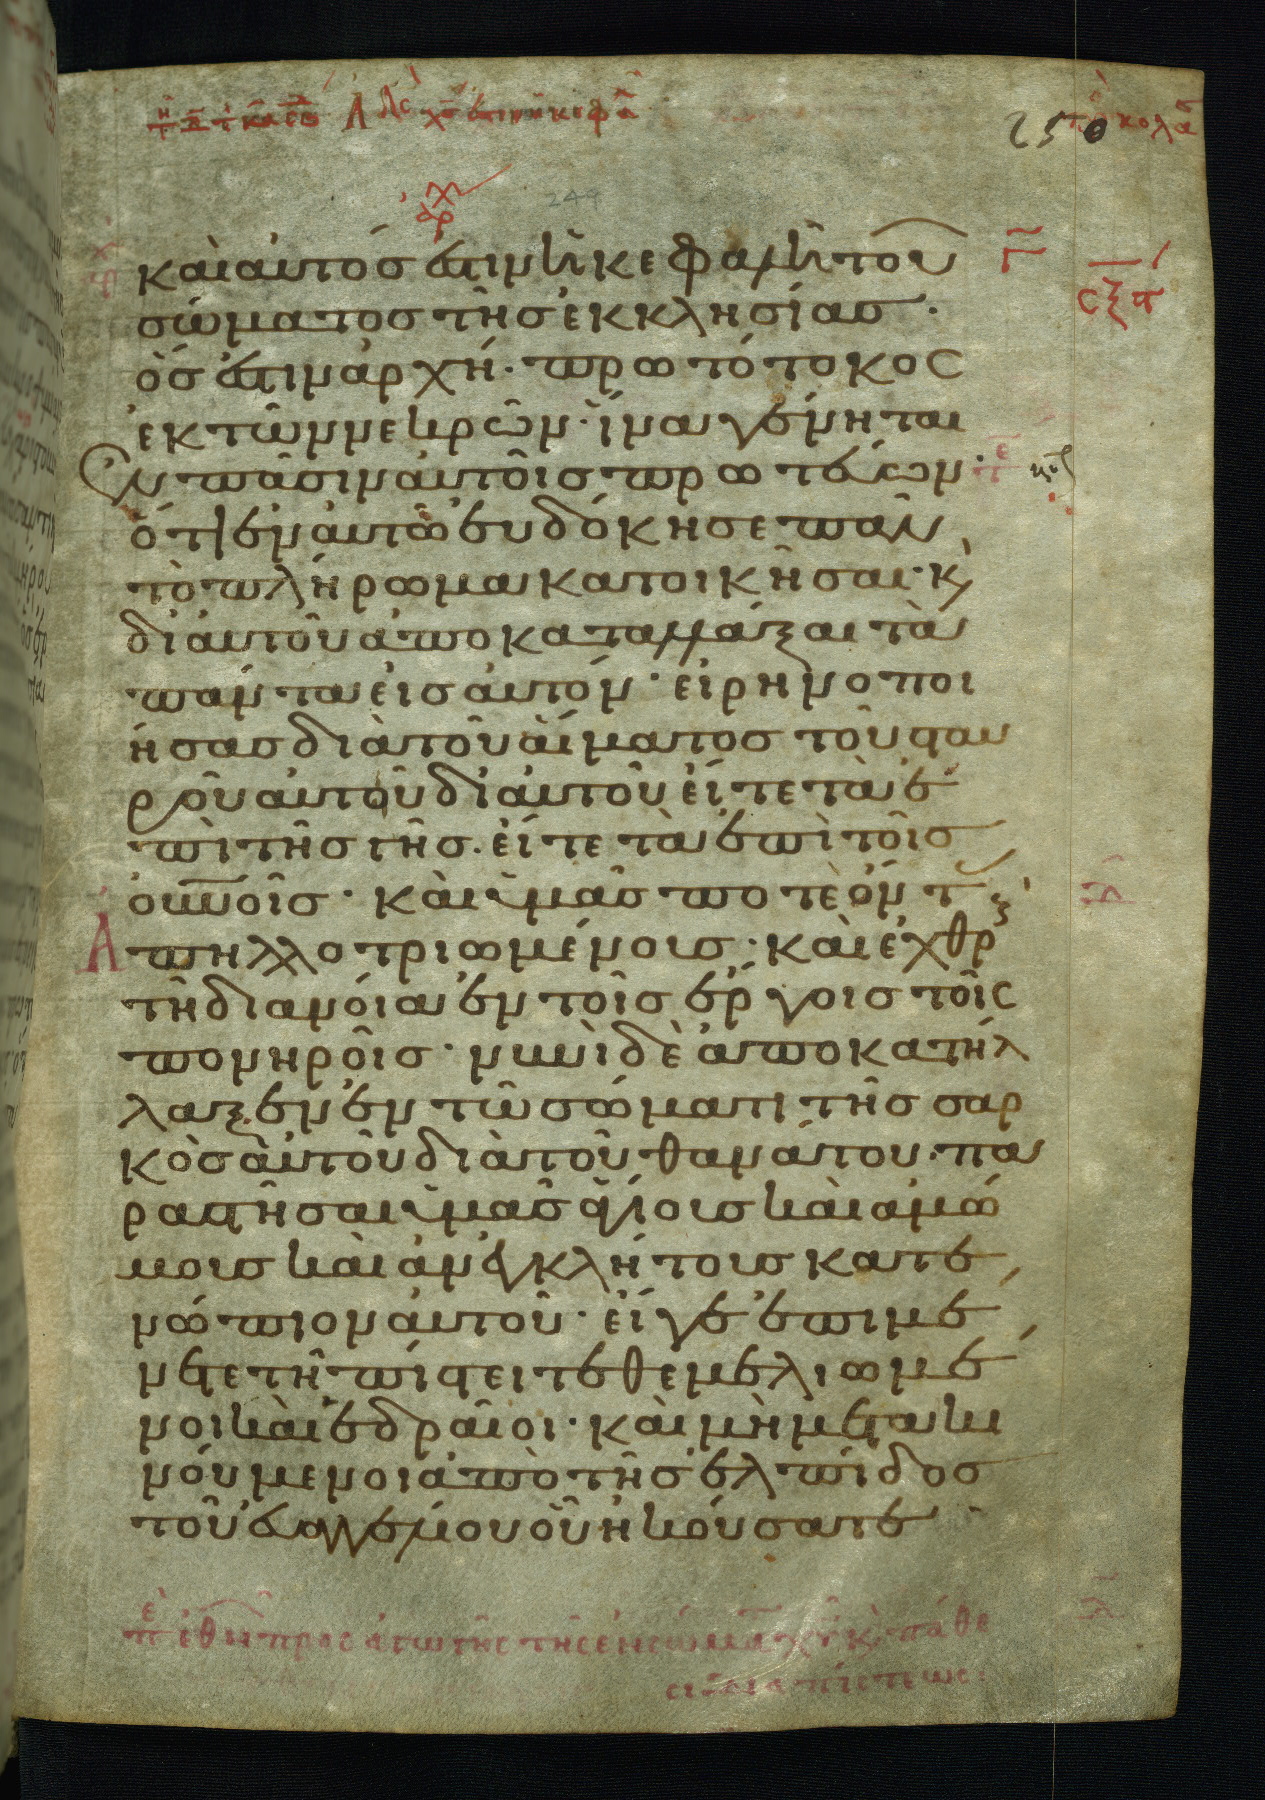 250
249
καὶ αὐτός ἐστιν ἡ κεφαλὴ τοῦ
σώματος τῆς ἐκκλησίας·
ὅς ἐστιν ἀρχή· πρωτότοκος
ἐκ τῶν νεκρῶν· ἵνα γένηται
ἐν πᾶσιν αὐτοῖς πρωτεύων·
ὅτι ἐν αὐτῶ εὐδόκησε πᾶν
τὸ πλήρωμα κατοικῆσαι· κ
δι αὐτοῦ ἀποκαταλλάξαι τὰ
πάντα εἰς αὐτόν· εἰρηνοποι
ήσας διὰ τοῦ αἵματος τοῦ σταυ
ροῦ αὐτοῦ δι αὐτοῦ εἴτε τὰ ἐ
πὶ τῆς γῆς· εἴτε τὰ ἐπὶ τοῖς
οὐνοῖς· καὶ ὑμᾶς ποτὲ ὄντ
ἀπηλλοτριωμένους· καὶ ἐχθρ
τῆ διανοία ἐν τοῖς ἔργοις τοῖς
πονηροῖς· νυνὶ δὲ ἀποκατήλ
λαξεν ἐν τῶ σώματι τῆς σαρ
κὸς αὐτοῦ διὰ τοῦ θανάτου· πα
ραστῆσαι ὑμᾶς ἁγίους καὶ ἀμώ
μους καὶ ἀνεγκλήτους κατε
νώπιον αὐτοῦ· εἴγε ἐπιμέ
νετε τῆ πίστει τεθεμελιωμέ
νοι καὶ ἑδραῖοι· καὶ μὴ μετακι
νούμενοι ἀπὸ τῆς ἐλπίδος
τοῦ εὐαγγελίου οὗ ἠκούσατε